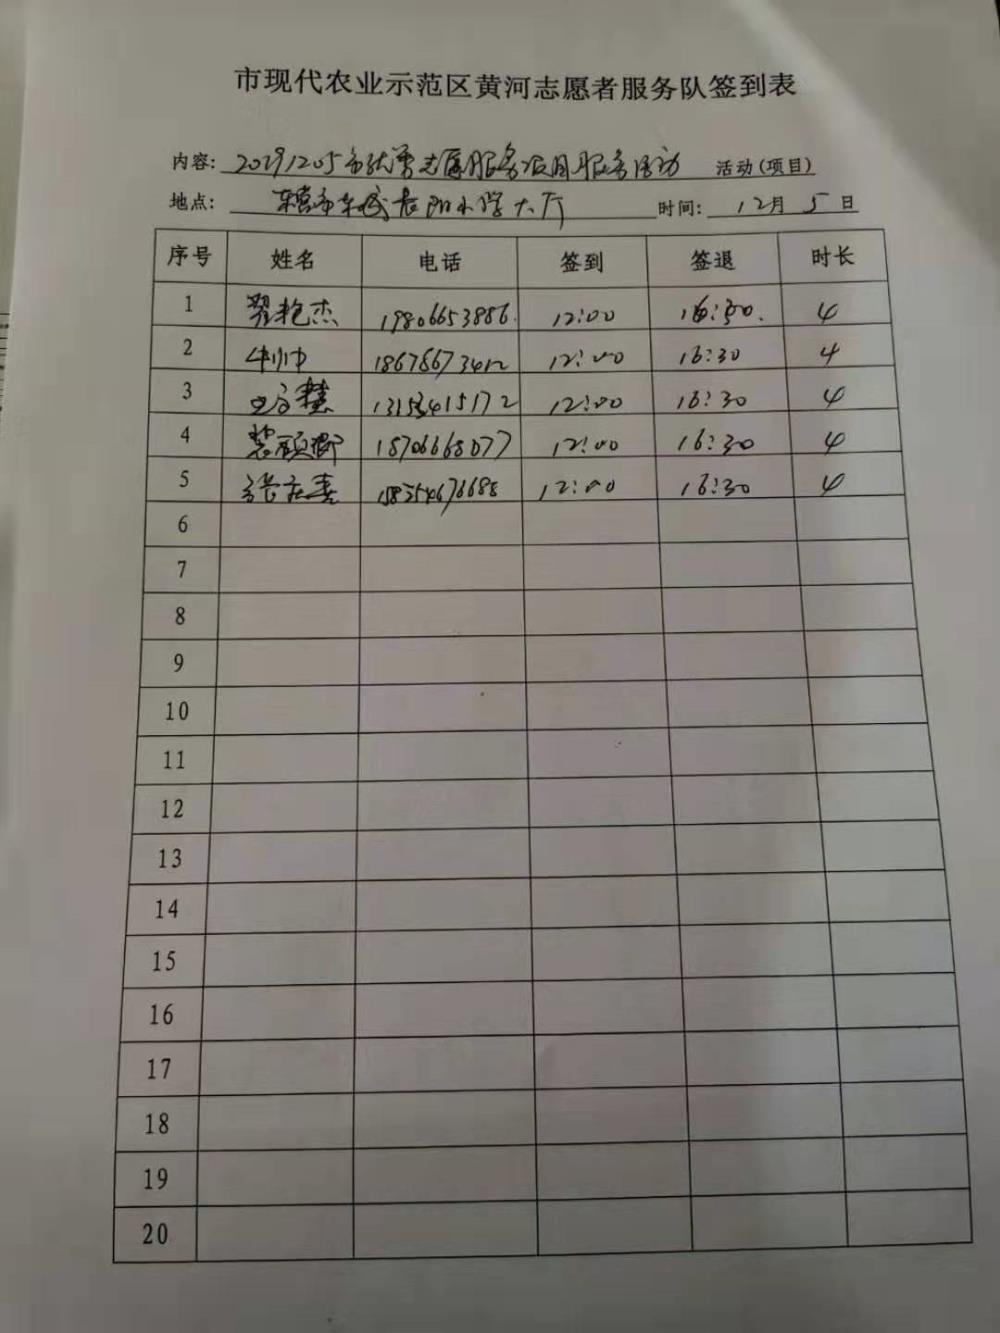 市现代农业示范区黄河志愿者服务队签到表
内容: 20191205市优秀志愿服务项目服务活动 活动(项目)
地点: 东营市东城 小学大厅 时间: 12月5日
序号 姓名 电话 签到 签退 时长
1 翟艳杰 19806653886. 12:00 16:30. 4
2 牛帅 18678673412 12:00 16:30 4
3 慧 13153415172 12:00 16:30 4
4 18706668077 12:00 16:30 4
5 张庆喜 12:00 16:30 4
6
7
8
9
10
11
12
13
14
15
16
17
18
19
20